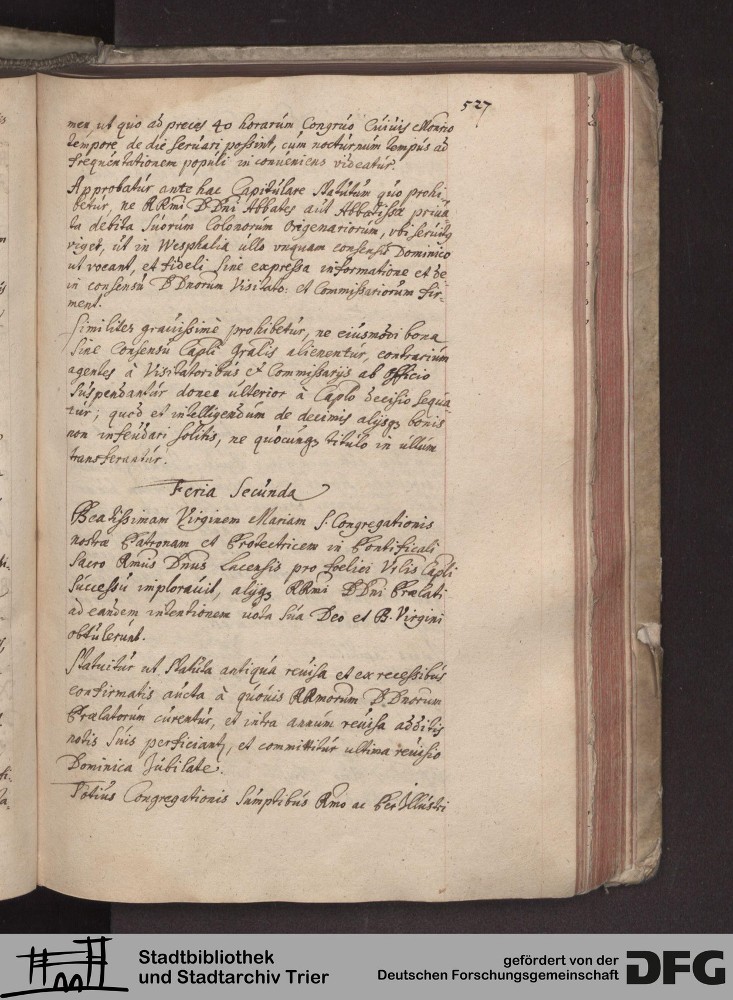 527
men, ut quo ad preces 40 horarum Congruo Cuiuis
tempore de die seruari possint, cum nocturnum tempus ad
frequentationem populi in conueniens videatur.
Approbatur ante hac Capitulare statutum quo prohi
betur, ne RRmi DDni Abbates aut Abbatissæ priua
ta debita suorum Colonorum Origenariorum, ubi seruitg
viget, ut in Wesphalia ullo unquam consensu Dominico
ut vocant, et fideli sine expressa informatione et de
in consensu DDnorum Visitato: et Commissariorum fir-
ment.
Similiter grauissime prohibetur, ne eiusmodi bona
sine Consensu Capli gralis alienentur, contrarium
agentes à Visitatoribus et Commissarijs ab officio
suspendantur donec ulterior à Caplo decisio sequa
tur; quod et intelligendum de decimis alijsq3 bonis
non infeudari solitis, ne quocunq3 titulo in ullum
transferantur.
Feria Secunda
Beatissimam Virginem Mariam S. Congregationis
nostræ Patronam et Protectricem in Pontificali
Sacro Rmus Dnus Lacensis pro foelici Vrlis Capli
successu implorauit, alijq3 RRmi DDni Prælati
ad eandem intentionem uota sua Deo et B. Virgini
obtulerunt.
Statuitur ut statuta antiqua reuisa et ex recessibus
confirmatis aucta à quouis RRmorum DDnorum
Prælatorum curentur, et intra annum reuisa additis
notis suis perficiant, et committitur ultima reuisio
Dominica Jubilate.
Totius Congregationis sumptibus Rmo ac Per Illustri
Stadtbibliothek
und Stadtarchiv Trier
gefördert von der
Deutschen Forschungsgemeinschaft
DFG